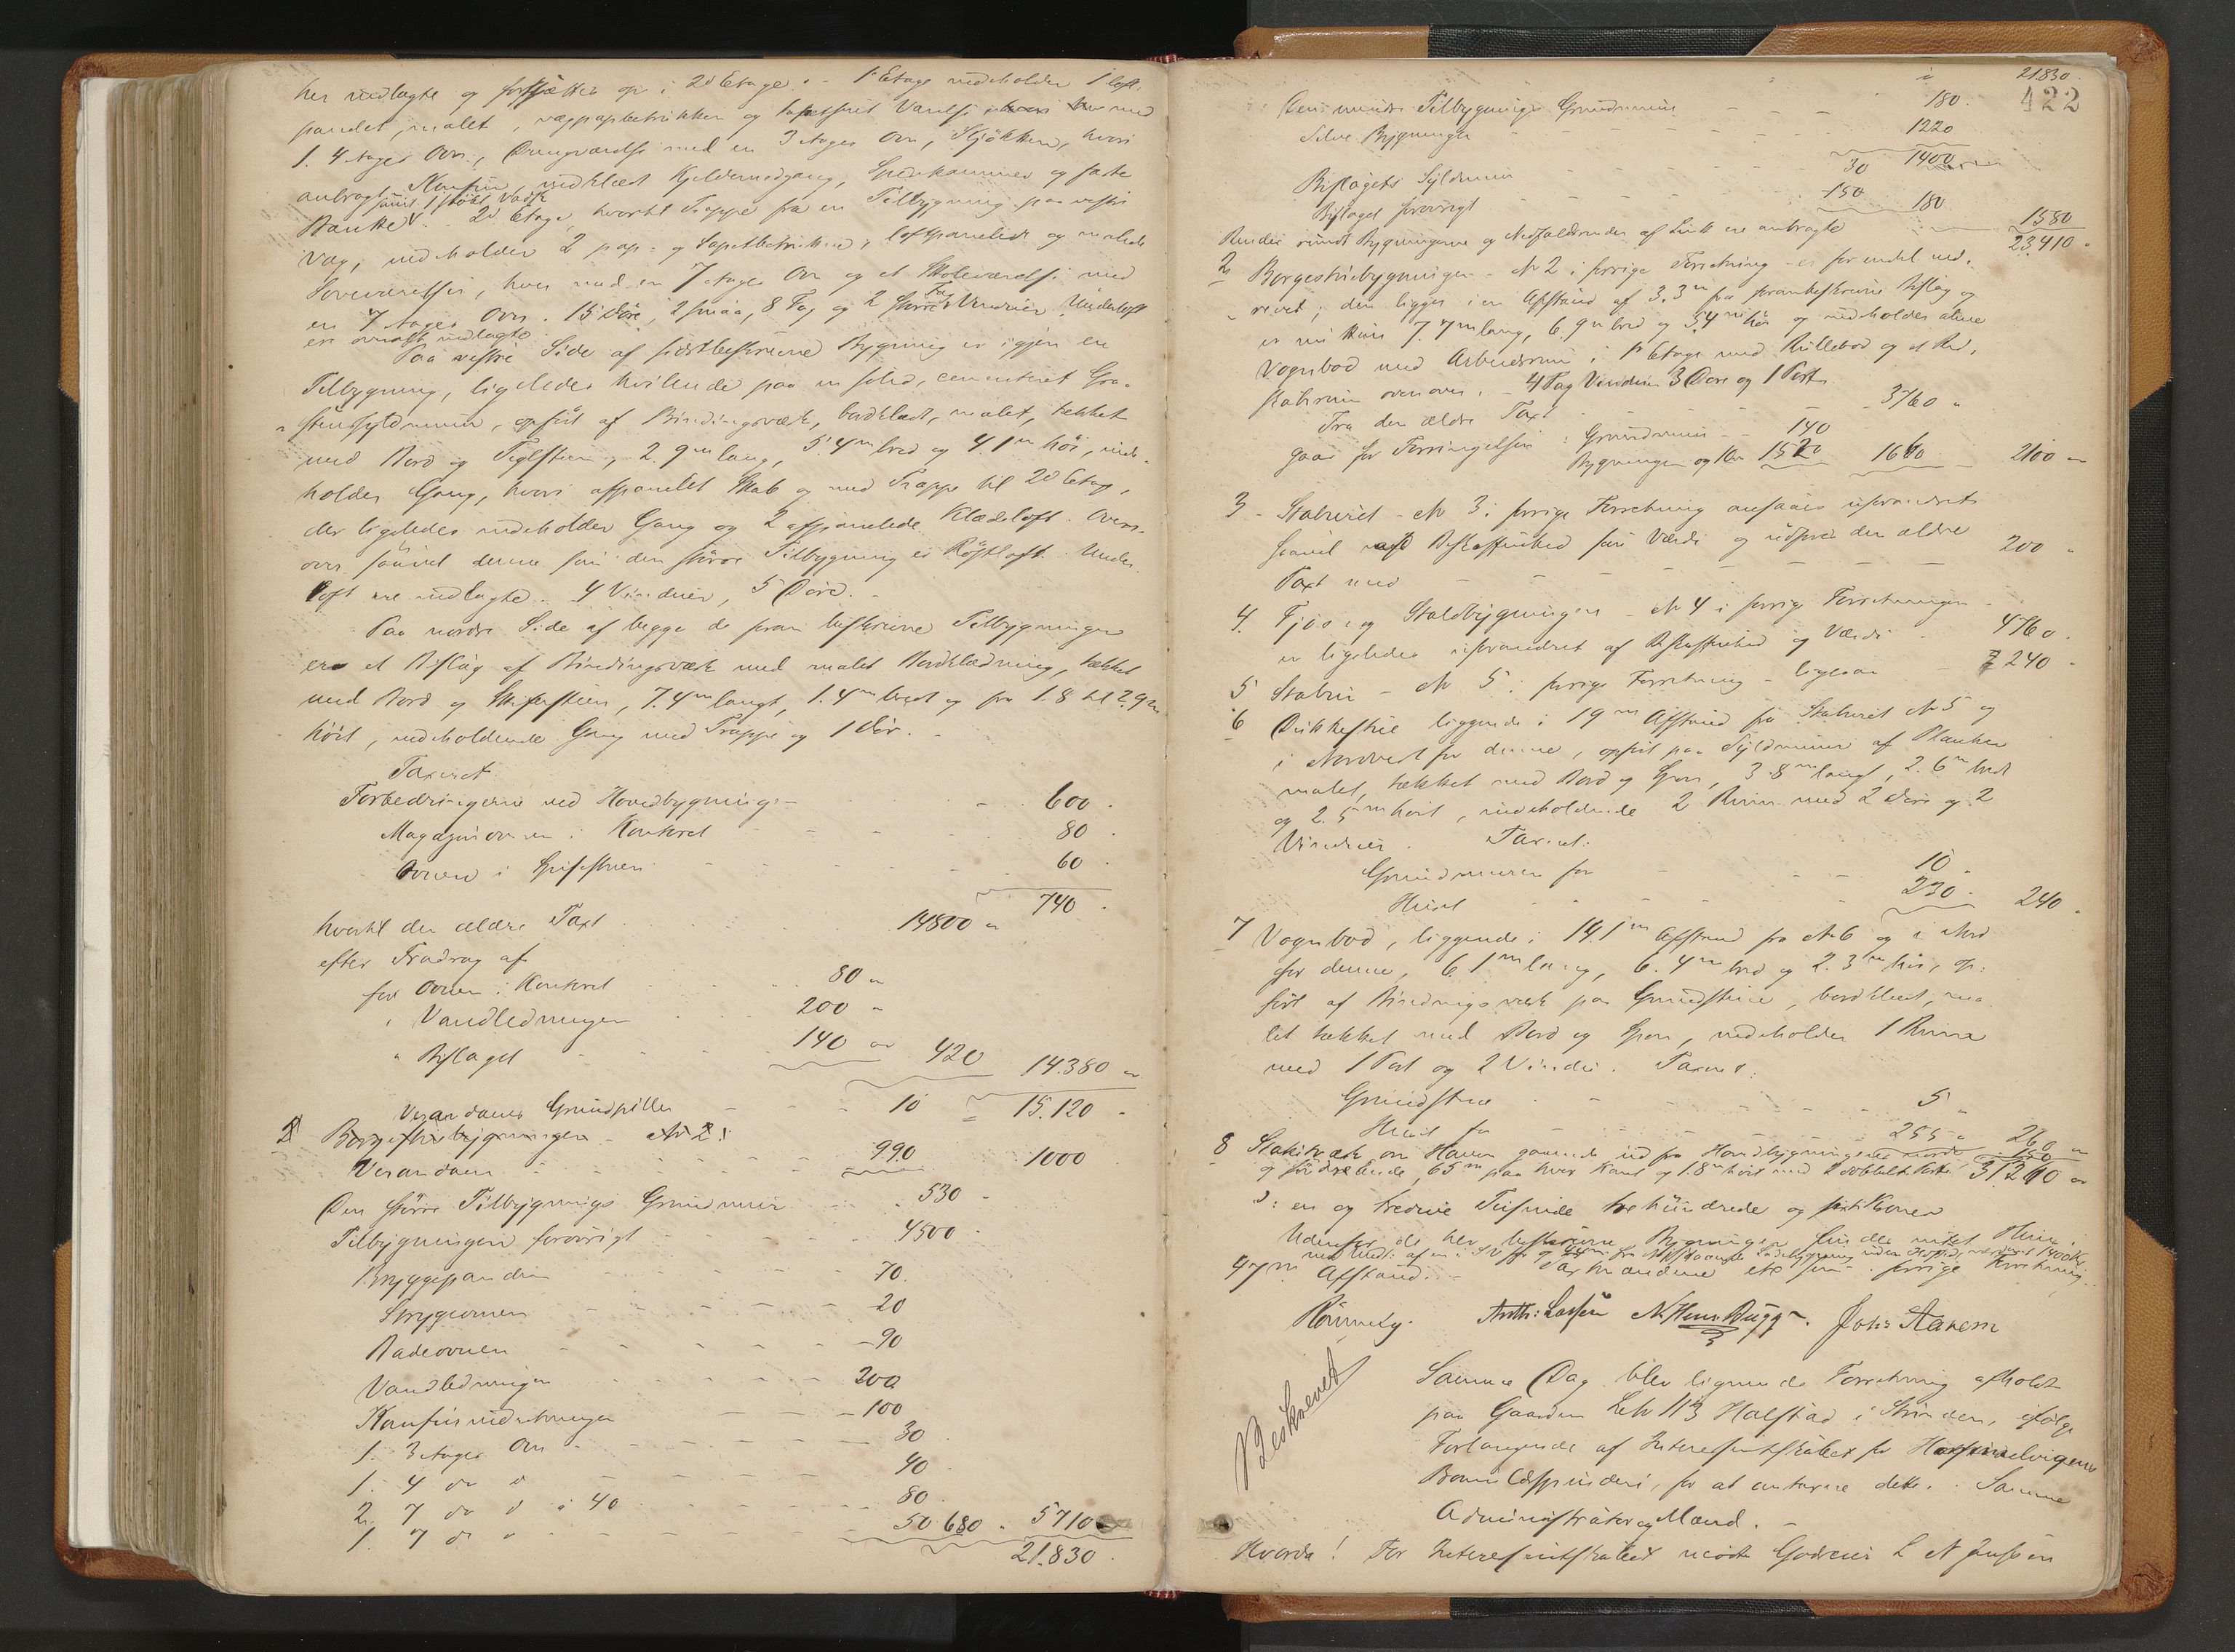 her indlagte og fortsættes op i 2d Etage. - 1e Etage indeholder 1 loft-
panelet, malet, væggapbetrukken og tapetseret Værelse med
1. 4 Etages Ovn, Drengeværelse med en 3 Etages Ovn, Kjøkken, hvori
anbragt Komfur, indklædt Kjeldernedgang, Spisekammer og faste
samt 1 støbt Vadsk
Bænke. 2d Etage, hvortil Trappe fra en Tilbygning paa vestre
Væg, indeholder 2 pap- og tapetbetrukne, loftpanelede og malede
Soveværelser, hver med en 7 Etages Ovn og et Skoleværelse med
en 7 Etages Ovn. 15 Døre, 2 smaa, 8 Fag og 2 større Fag Vinduer. Underloft
er overalt indlagte
Paa vestre Side af sidstbeskrevne Bygning er igjen en
Tilbygning, ligeledes hvilende paa en solid, cementeret Graa-
stensyldmuur, opført af Bindingsværk, bordklædt, malet, tækket
med Bord og Teglsten, 2.9m lang, 5.4m bred og 4.1m høi, inde-
holder Gang, hvori afpanelet Skab og med Trappe til 2d Etage,
der ligeledes indeholder Gang og 2 afpanelede Klædeloft. Oven-
over saavel denne som den større Tilbygning er Røstloft. Under-
loft ere indlagte. 4 Vinduer, 5 Døre. -
Paa nordre Side af begge de foran beskrevne Tilbygninger
er et Bislag af Bindingsværk med malet Bordklædning, tækket
med Bord og Skifersteen, 7.4m langt, 1.4m bredt og fra 1.8 til 2.9m
høit, indeholdende Gang med Trappe og 1 Dør. -
Taxeret
Forbedringerne ved Hovedbygningen - 600 -
Magazinovnen i Kontoret - 80 -
Ovnen i Spisestuen - 60 -
740 -
hvortil den ældre Taxt 14800 "
efter Fradrag af
for Ovnen i Kontoret 80 "
" Vandledningen 200 -
" Bislaget 140 " 420 14.380 "
15.120 -
Verandaens Grundpiller - 10
2 Borgestuebygningen - No 2 i
Verandaen 990 1000
Den større Tilbygnings Grundmuur 530 -
Tilbygningen forøvrigt 4500 -
Bryggepanden 70.
Strygeovnen 20
Badeovnen 90
Vandledningen 200
Komfurindretningen 100
1. 3 Etages Ovn - 30
1. 4 do do 40
2. 7 do do à 40 80
1. 7 do do 50 680 " 5710
21.830 -
422
21830.
Den mindre Tilbygnings Grundmuur 180.
Selve Bygningen 1220
1400
Bislagets Syldmuur 30
Bislaget forøvrigt 150 180 1580
Render rundt Bygningerne og Nedfaldsrender af Zink ere anbragte 23.410 -
2 Borgestuebygningen - No 2 i forrige Forretning - er for endel ned-
revet; den ligger i en Afstand af 3.3m fra foranbeskrevne Bislag og
er nu kun 7.7m lang, 6.9m bred og 5.4m høi og indeholder alene
Vognbod med Arbeidsrum i 1e Etage med Rullebod og et Red-
skabrum ovenover. - 4 Fag Vinduer 3 Døre og 1 Port
Fra den ældre Taxt 3760 "
gaar for Forringelsen: Grundmuur - 140
Bygningen og 1520 1660 2100 "
3 - Stabburet - No 3 i forrige Forretning ansaaes uforandret
saavel af Beskaffenhed som Værdi og udføres den ældre
Taxt med - 200 "
4. Fjøs og Staldbygningen - No 4 i forrige Forretningen -
er ligeledes uforandret af Beskaffenhed og Værdi - 4760.
5 Stabur - No 5 i forrige Forretning - ligesaa - 240 -
6 Dukkestue liggende i 19m Afstand fra Stabburet No 5 og
i Nordvest for denne, opført paa Syldmuur af Planker
malet, tækket med Bord og Spon, 3.8m langt, 2.6m bredt
og 2.5m høit, indeholdende 2 Rum med 2 Døre og 2
Vinduer. Taxeret:
Grundmuren for 10 -
Huset 230 - 240 -
7 Vognbod, liggende i 14.1m Afstand fra No 6 og i Nord
for denne, 6.1m lang, 6.4m bred og 2.3m høi, op-
ført af Bindingsværk paa Grundstene, bordklædt, ma-
let tækket med Bord og Spon, indeholder 1 Rum
med 1 Port og 2 Vinduer. Taxeret:
Grundstene 5 "
Huset for 255 " 260 "
8 Stakitværk om Haven gaaende ud fra Hovedbygningens nordre
og søndre Ende, 65m paa hver Kant og 1.8m høit med 2 dobbelte Porte 150
31260 "
ɔ: en og tredive Tusinde to hundrede og sexti Kroner
Udenfor de her beskrevne Bygninger findes intet Huus i
47m Afstand. - Taxtmændene etc som i forrige Forretning.
Rømuely. Anth: Lassen N. Hens. Bugge. Johs Aanesn
Beskrevet
Samme Dag blev lignende Forretning afholdt
paa Gaarden Løb No 113 Halstad i Strinden, ifølge
Forlangende af Interessentskabet for
Bomuldsspinderi, for at omtaxere dette. - Samme
Administrator og Mænd. -
Hvorda! For Interessentskabet mødte Godseier L N Jenssen